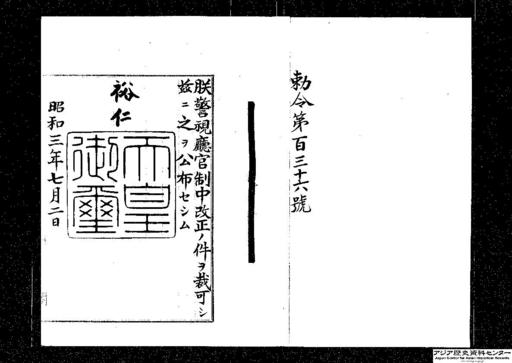 勅令第百三十六號
朕警視廳官制中改正ノ件ヲ裁可シ
玆ニ之ヲ公布セシム
裕仁
天皇
御璽
昭和三年七月二日
アジア歴史資料センター
Japan Center for Asian Historical Records